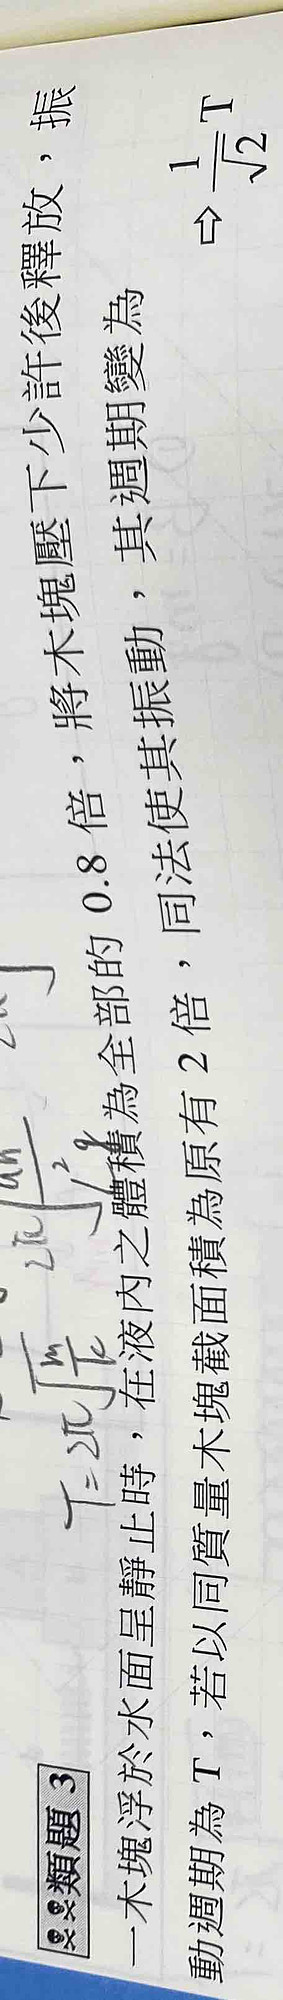 類題 3
T=2π√m/k
一木塊浮於水面呈靜止時，在液內之體積為全部的 0.8 倍，將木塊壓下少許後釋放，振
動週期為 T，若以同質量木塊截面積為原有 2 倍，同法使其振動，其週期變為
⇨ 1/√2 T